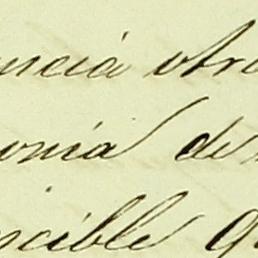 uncia otro
onia de
ncible q